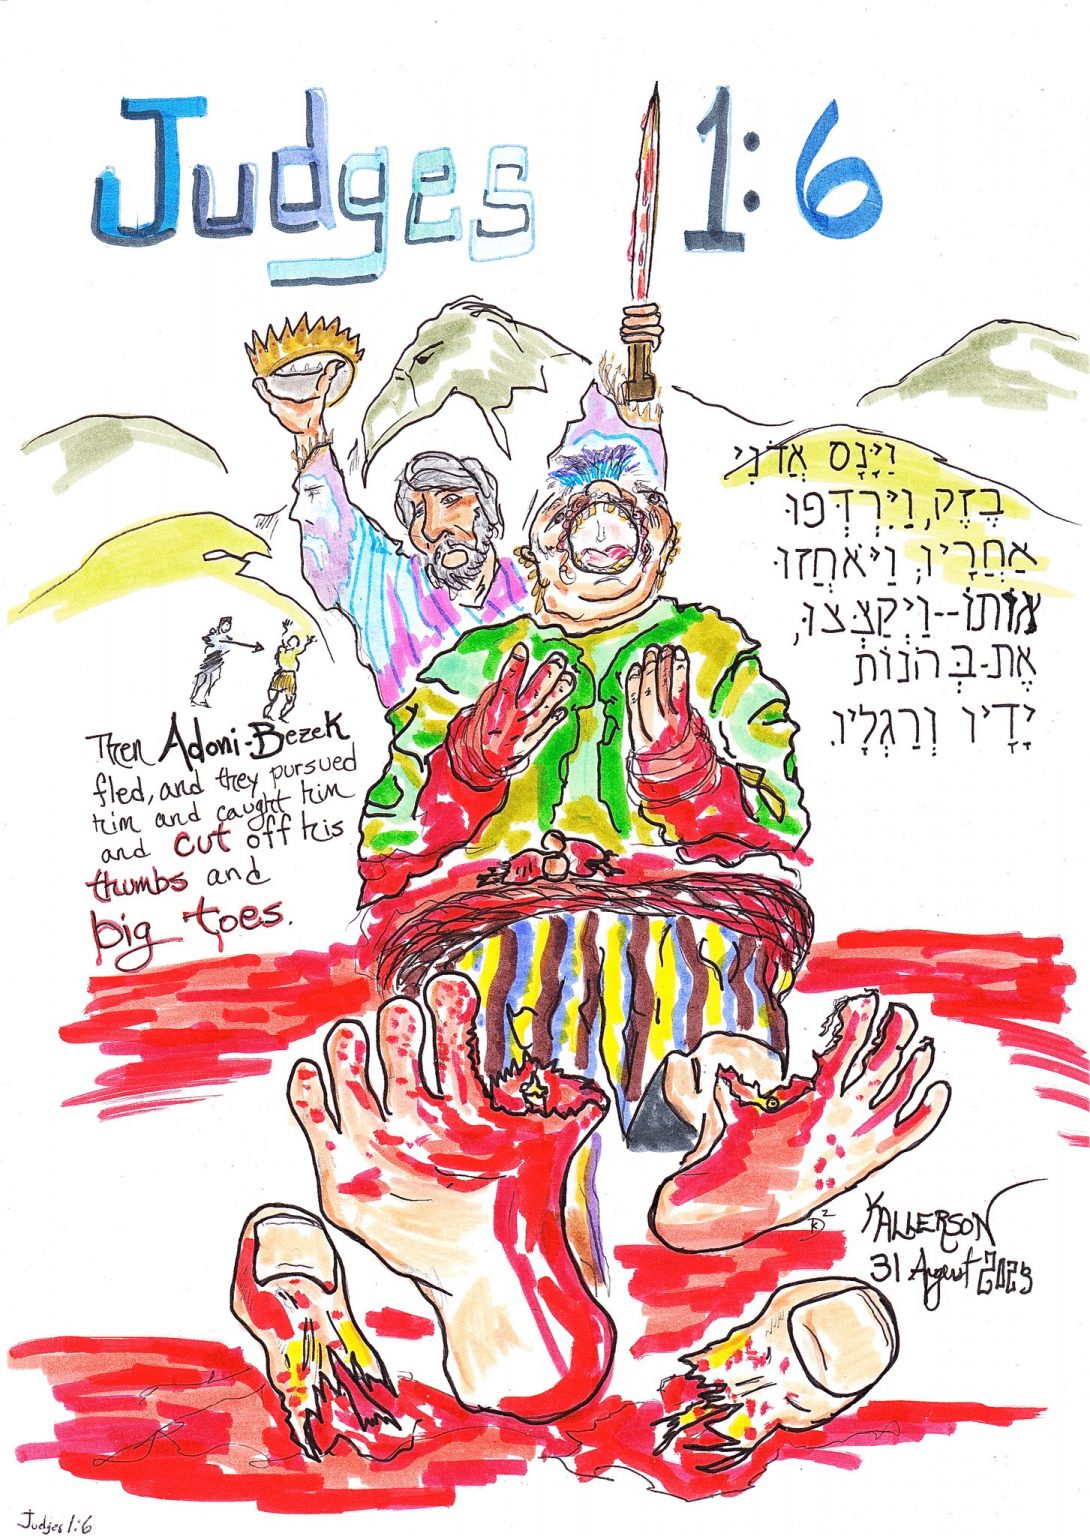 Judges 1:6
וַיָּנָס אֲדֹנִי
בֶזֶק, וַיִּרְדְּפוּ
אַחֲרָיו; וַיֹּאחֲזוּ
אוֹתוֹ--וַיְקַצְּצוּ,
אֶת-בְּהֹנוֹת
יָדָיו וְרַגְלָיו.
Then Adoni-Bezek
fled, and they pursued
him and caught him
and cut off his
thumbs and
big toes.
KALLERSON
31 August 2025
Judges 1:6